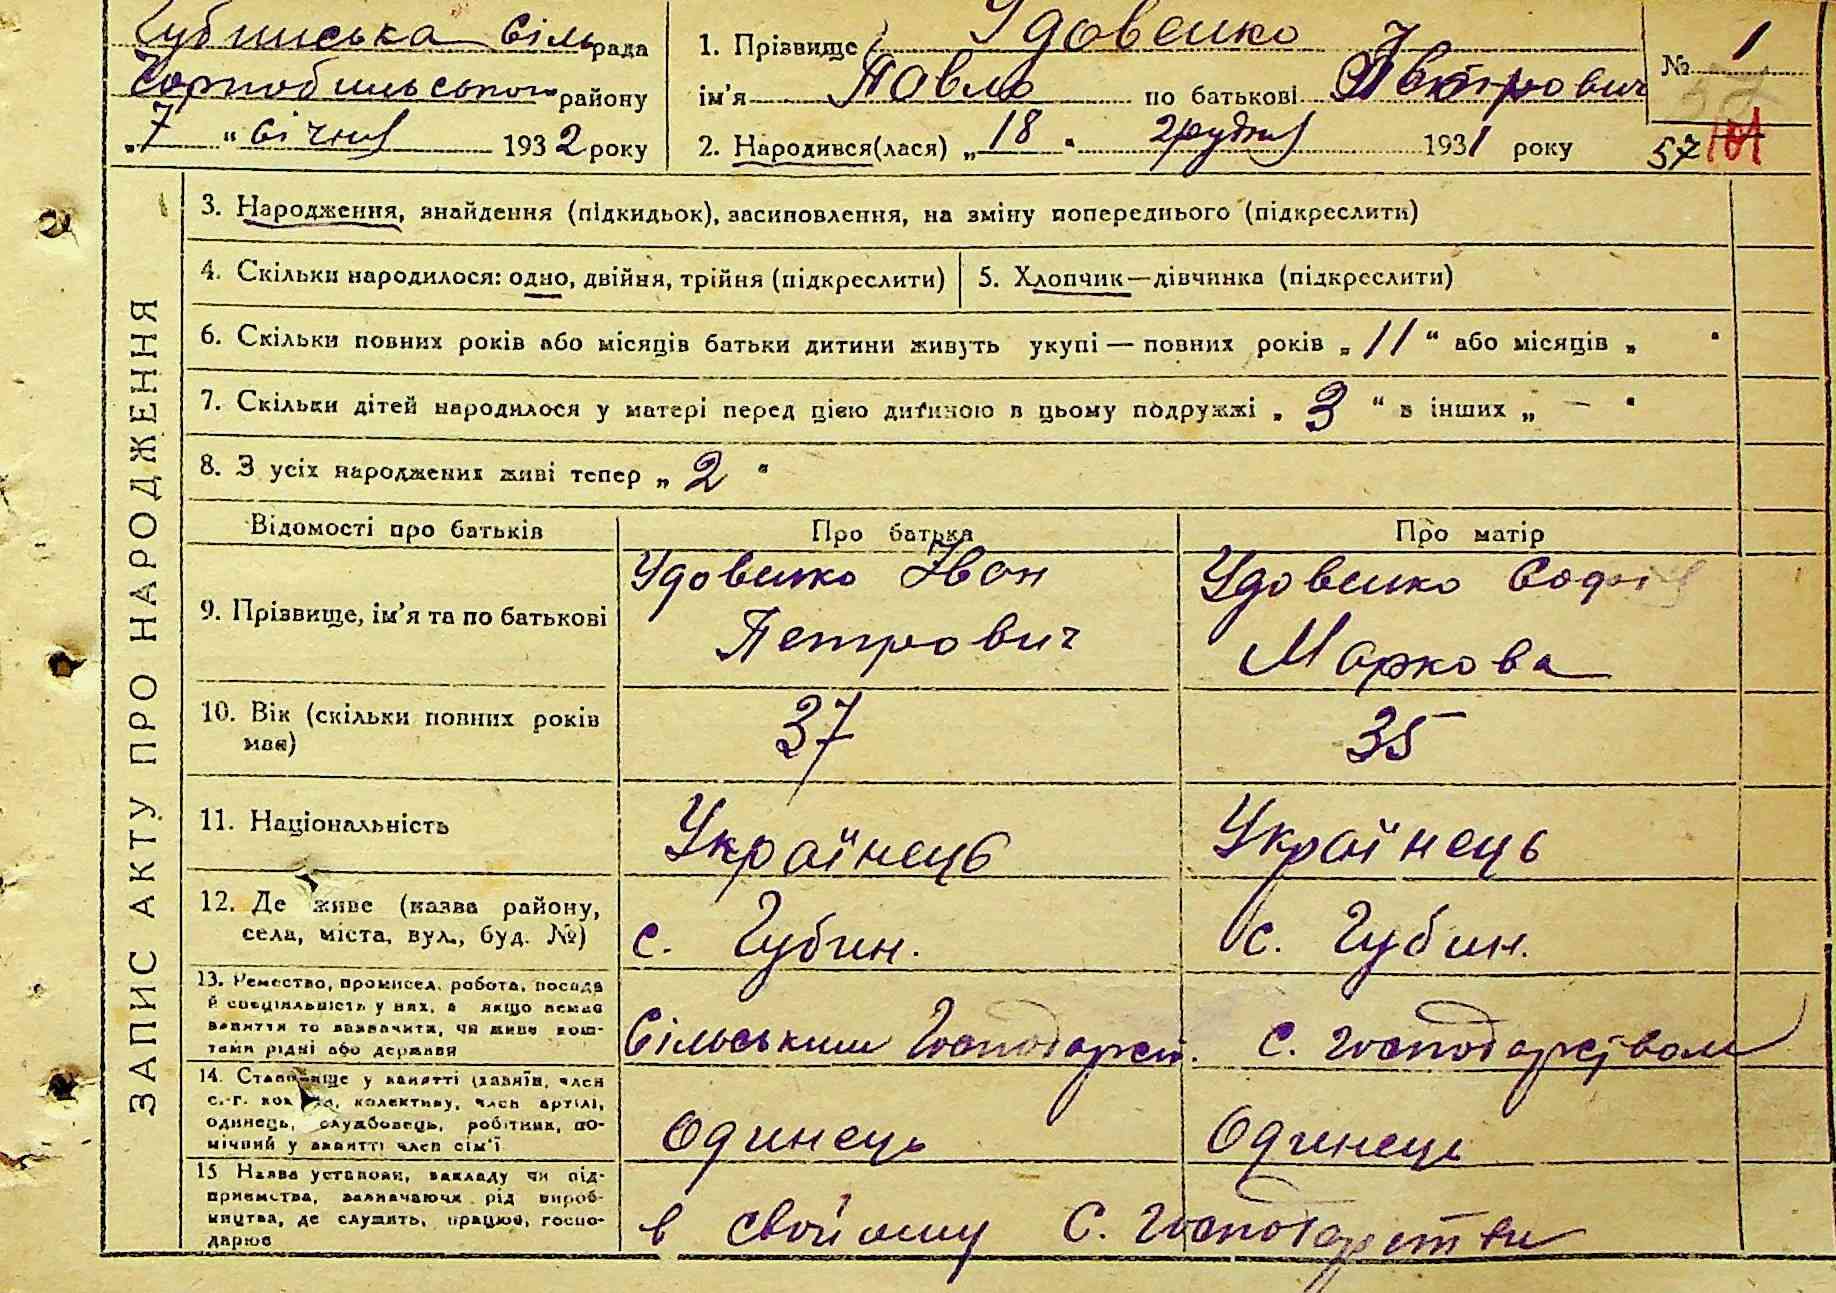 Губинська сільрада
Чорнобильського району
„7“ січня 1932 року
1. Прізвище Удовенко
ім'я Павло по батькові Петрович
2. Народився(лася) „18“ грудня 1931 року
№ 1
57 101
ЗАПИС АКТУ ПРО НАРОДЖЕННЯ
3. Народження, знайдення (підкидьок), засиновлення, на зміну попереднього (підкреслити)
4. Скільки народилося: одно, двійня, трійня (підкреслити)
5. Хлопчик—дівчинка (підкреслити)
6. Скільки повних років або місяців батьки дитини живуть укупі — повних років „11“ або місяців „ “
7. Скільки дітей народилося у матері перед цією дитиною в цьому подружжі „3“ в інших „—“
8. З усіх народжених живі тепер „2“
Відомості про батьків Про батька Про матір
9. Прізвище, ім'я та по батькові
Удовенко Іван
Петрович
Удовенко Софія
Маркова
10. Вік (скільки повних років
має)
37 35
11. Національність Українець Українець
12. Де живе (назва району,
села, міста, вул., буд. №)
с. Губин. с. Губин.
13. Ремество, промисел, робота, посада
й спеціяльність у них, а якщо немає
заняття то зазначити, чи живе кош-
тами рідні або держави
Сільським Господарст. С. господарством
14. Становище у занятті (хазяїн, член
с.-г. комуни, колективу, член артілі,
одинець, службовець, робітник, по-
мічний у занятті член сім'ї
Одинець Одинець
15 Назва установи, закладу чи під-
приємства, зазначаючи рід вироб-
ництва, де служить, працює, госпо-
дарює
в свойому С. Господарстви